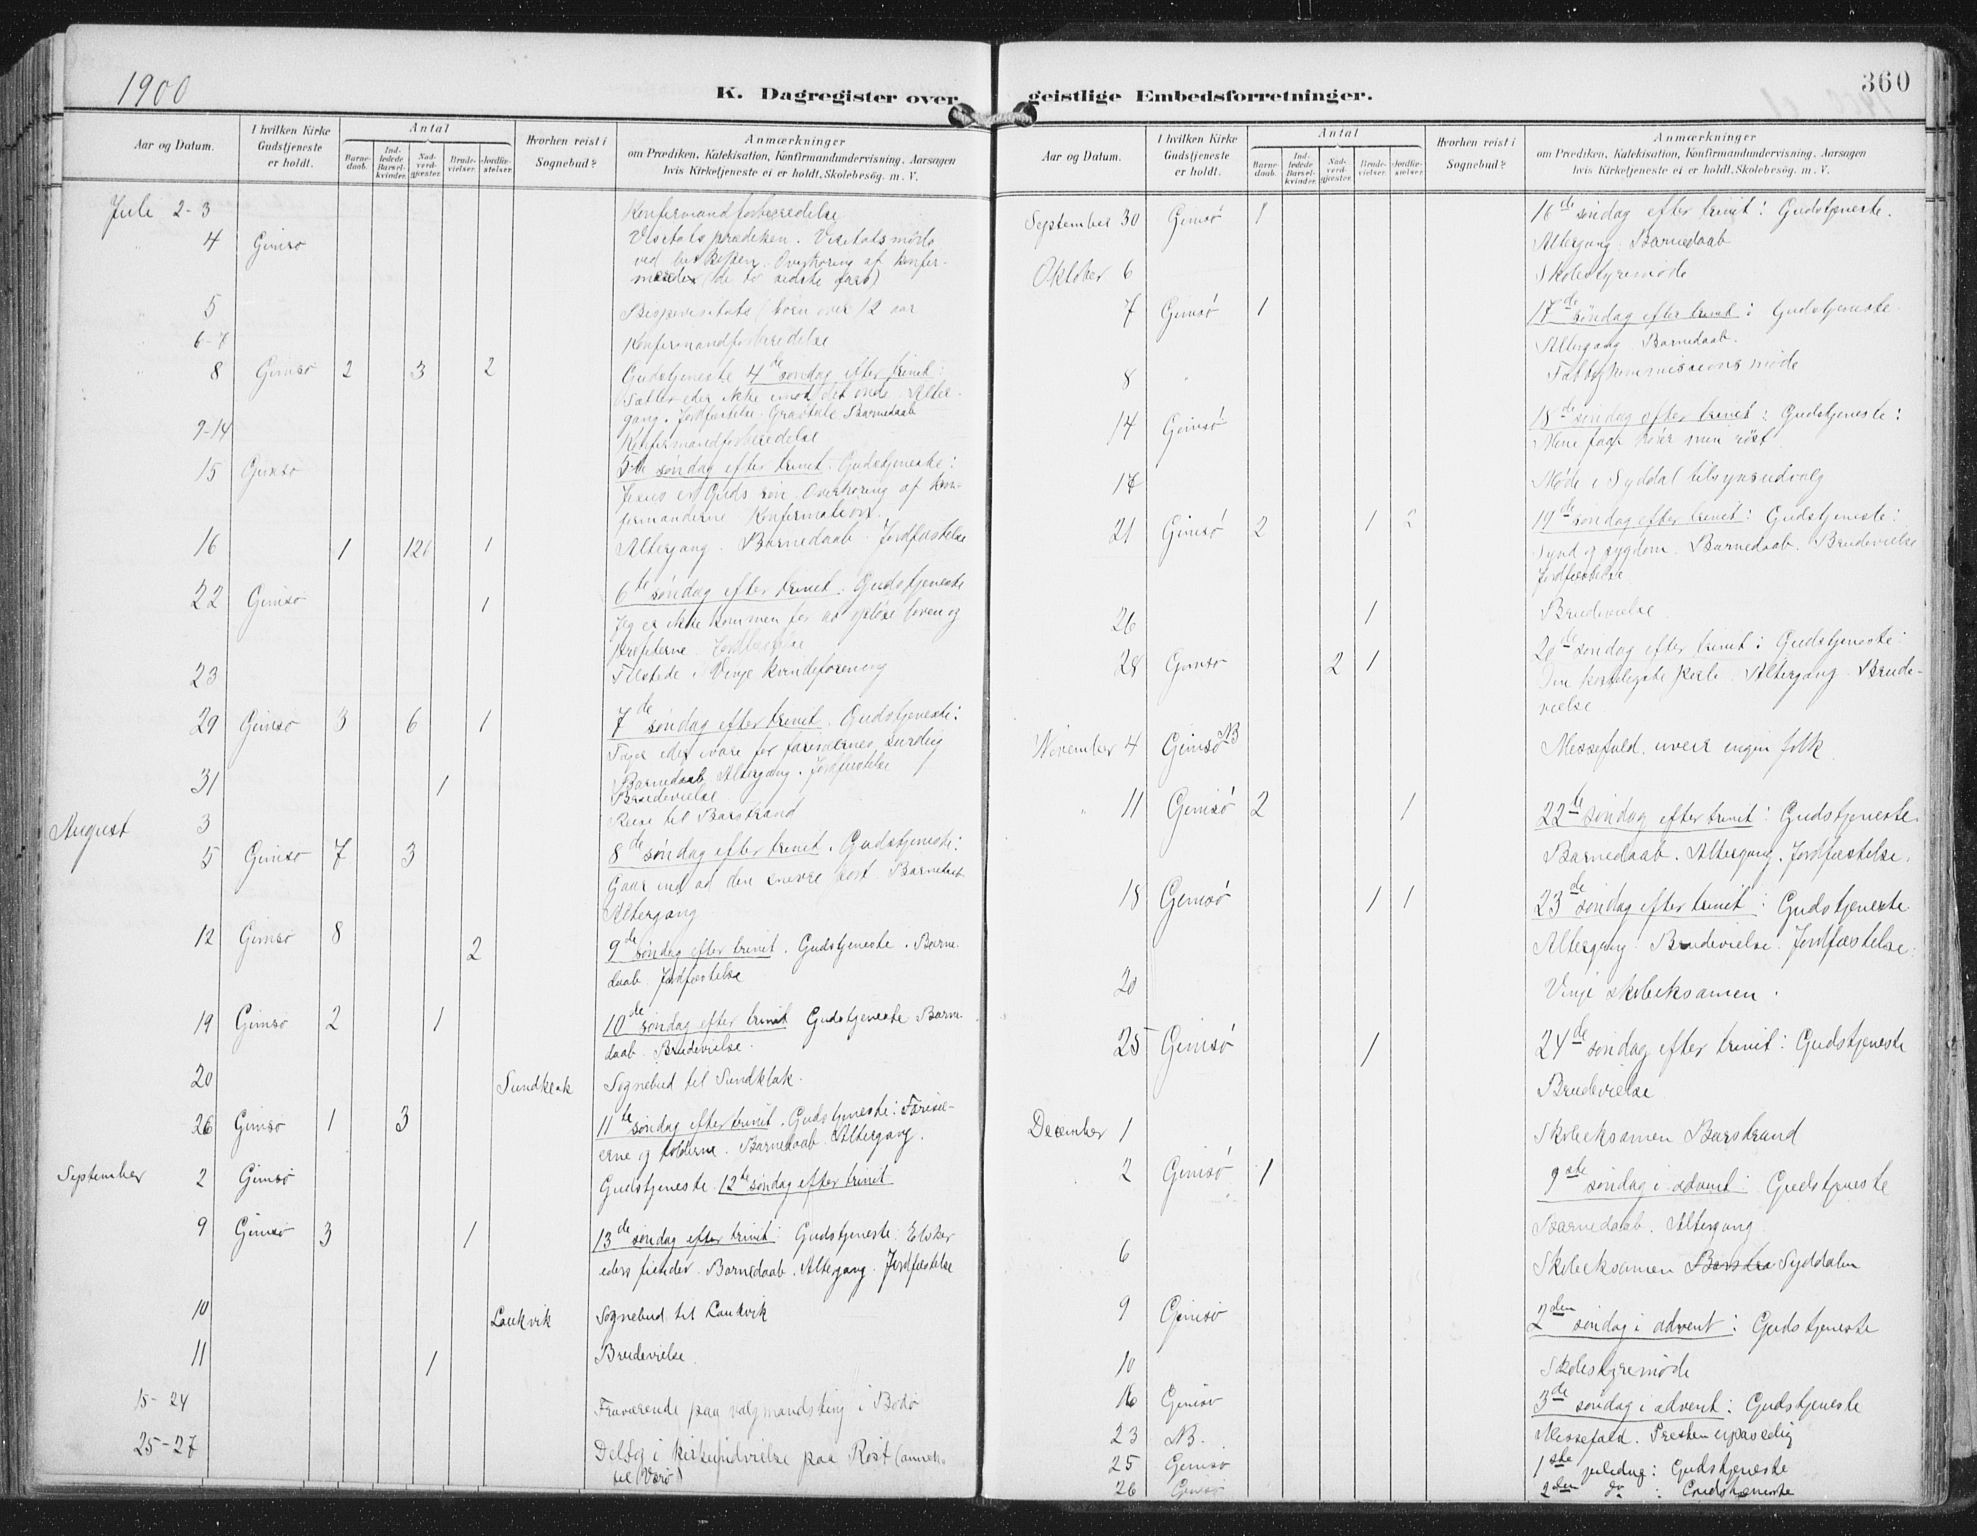 1900
K. Dagregister over
Aar og Datum.
I hvilken Kirke Gudstjeneste er holdt.
Antal
Barnedaab.
Indledede Barselkvinder.
Nadverdgjæster.
Brudevielser.
Jordfæstelser.
Hvorhen reist i Sognebud?
Anmærkninger
om Prædiken, Katekisation, Konfirmandundervisning. Aarsagen
hvis Kirketjeneste ei er holdt. Skolebesøg. m. V.
Jule 2-3 Konfirmandforberedelse
4 Gimsø Visitatsprædiken. Visitatsmøde
ved Overhøring af konfir-
5 Bispevisitats (børn over 12 aar
6-7 Konfirmandforberedelse
8 Gimsø 2 3 2 Gudstjeneste 4de søndag efter trinit:
Sætter eder ikke imod det onde. Alter-
gang. Jordfæstelse. Gravtale Barnedaab
9-14 Konfirmandforberedelse
15 Gimsø 5te søndag efter trinit. Gudstjeneste:
Jesus er Guds søn. Overhøring af kon-
firmanderne Konfirmation.
16 1 126 1 Altergang. Barnedaab. Jordfæstelse
22 Gimsø 1 6te søndag efter trinit. Gudstjeneste
Jeg er ikke kommen for at opløse loven og
profeterne. Jordfæstelse
23 Tilstede i Vinje kvindeforening
29 Gimsø 3 6 1 7de søndag efter trinit. Gudstjeneste:
Tager eder vare for farisæernes surdeig
Barnedaab Altergang. Jordfæstelse
31 1 Brudevielse
August 3 Reise til Barstrand
5 Gimsø 7 3 8de søndag efter trinit. Gudstjeneste:
Gaar ind ad den snevre port. Barnedaab
Altergang
12 Gimsø 8 2 9de søndag efter trinit. Gudstjeneste. Barne-
daab. Jordfæstelse
19 Gimsø 2 1 10de søndag efter trinit Gudstjeneste Barne-
daab. Brudevielse.
20 Sundklak Sognebud til Sundklak.
26 Gimsø 1 3 11te søndag efter trinit. Gudstjeneste: Farisæ-
erne og tolderne. Barnedaab. Altergang.
September 2 Gimsø Gudstjeneste 12te søndag efter trinit
9 Gimsø 3 1 13de søndag efter trinit: Gudstjeneste: Elsker
eders fiender. Barnedaab. Altergang. Jordfæstelse
10 Laukvik Sognebud til Laukvik
11 1 Brudevielse.
15-24 Fraværende paa valgmandsting i Bodø
25-27 Deltog i kirkeindvielse paa Røst (annek-
til Værø)
360
geistlige Embedsforretninger.
Aar og Datum.
I hvilken Kirke Gudstjeneste er holdt.
Antal
Barnedaab.
Indledede Barselkvinder.
Nadverdgjæster.
Brudevielser.
Jordfæstelser.
Hvorhen reist i Sognebud?
Anmærkninger
om Prædiken, Katekisation, Konfirmandundervisning. Aarsagen
hvis Kirketjeneste ei er holdt. Skolebesøg. m. V.
September 30 Gimsø 1 16de søndag efter trinit: Gudstjeneste.
Altergang. Barnedaab
Oktober 6 Skolestyremøde
7 Gimsø 1 17de søndag efter trinit: Gudstjeneste.
Altergang. Barnedaab.
8 Fattigkommissionsmøde
14 Gimsø 18de søndag efter trinit: Gudstjeneste:
Mine faar hører min røst
17 Møde i Syddal tilsynsudvalg
21 Gimsø 2 1 2 19de søndag efter trinit: Gudstjeneste:
Synd og sygdom. Barnedaab. Brudevielse
Jordfæstelse
26 1 Brudevielse
28 Gimsø 2 1 20de søndag efter trinit: Gudstjeneste:
Altergang. Brude-
vielse
November 4 Gimsø NB Messefald. uveir ingen folk
" 11 Gimsø 2 1 22de søndag efter trinit: Gudstjeneste.
Barnedaab. Altergang. Jordfæstelse.
18 Gimsø 1 1 23de søndag efter trinit: Gudstjeneste
Altergang. Brudevielse. Jordfæstelse.
20 Vinje skoleeksamen.
25 Gimsø 1 24de søndag efter trinit: Gudstjeneste
Brudevielse
December 1 Skoleeksamen Barstrand
2 Gimsø 1 1ste søndag i advent: Gudstjeneste
Barnedaab. Altergang
6 Skoleeksamen Barstra Syddalen
9 Gimsø 2den søndag i advent: Gudstjeneste
10 Skolestyremøde
16 Gimsø 3de søndag i advent: Gudstjeneste
23 NB. Messefald. Presten upasselig
25 Gimsø 1ste juledag: Gudstjeneste
26 Gimsø 2den do : Gudstjeneste